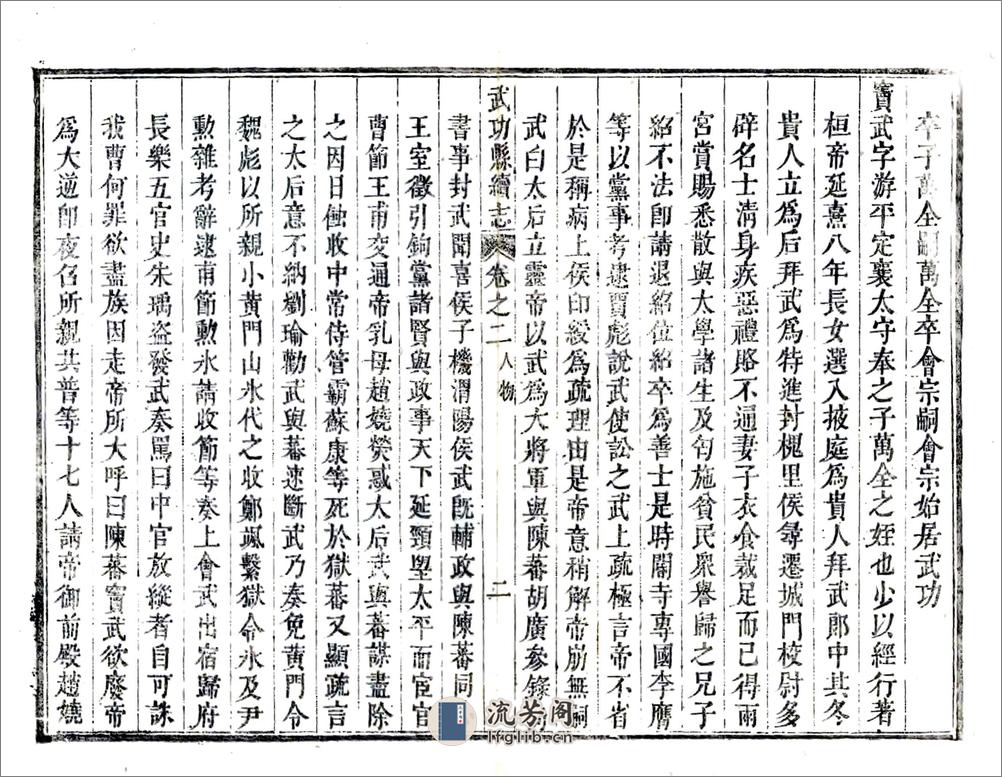 卒子萬全嗣萬全卒會宗嗣會宗始居武功
竇武字游平定襄太守奉之子萬全之姪也少以經行著
桓帝延熹八年長女選入掖庭為貴人拜武郎中其冬
貴人立為后拜武為特進封槐里侯尋遷城門校尉多
辟名士清身疾惡禮賂不通妻子衣食裁足而已得兩
宮賞賜悉散與太學諸生及匄施貧民眾譽歸之兄子
紹不法卽請退紹位紹卒為善士是時閹寺專國李膺
等以黨事考逮賈彪說武使訟之武上疏極言帝不省
於是稱病上侯印綬為疏理由是帝意稍解帝崩無嗣
武白太后立靈帝以武為大將軍與陳蕃胡廣參錄尚
武功縣續志 卷之二 人物 二
書事封武聞喜侯子機渭陽侯武旣輔政與陳蕃同
王室徵引鉤黨諸賢與政事天下延頸望太平而宦官
曹節王甫交通帝乳母趙嬈熒惑太后武與蕃謀盡除
之因日蝕收中常侍管霸蘇康等死於獄蕃又顯疏言
之太后意不納劉瑜勸武與蕃速斷武乃奏免黃門令
魏彪以所親小黃門山氷代之收鄭颯繫獄令氷及尹
勲雜考辭逮甫節勲氷請收節等奏上會武出宿歸府
長樂五官史朱瑀盜發武奏罵曰中官放縱者自可誅
我曹何罪欲盡族因走帝所大呼曰陳蕃竇武欲廢帝
為大逆卽夜召所親共普等十七人請帝御前殿趙嬈
流芳阁
lfglib.cn